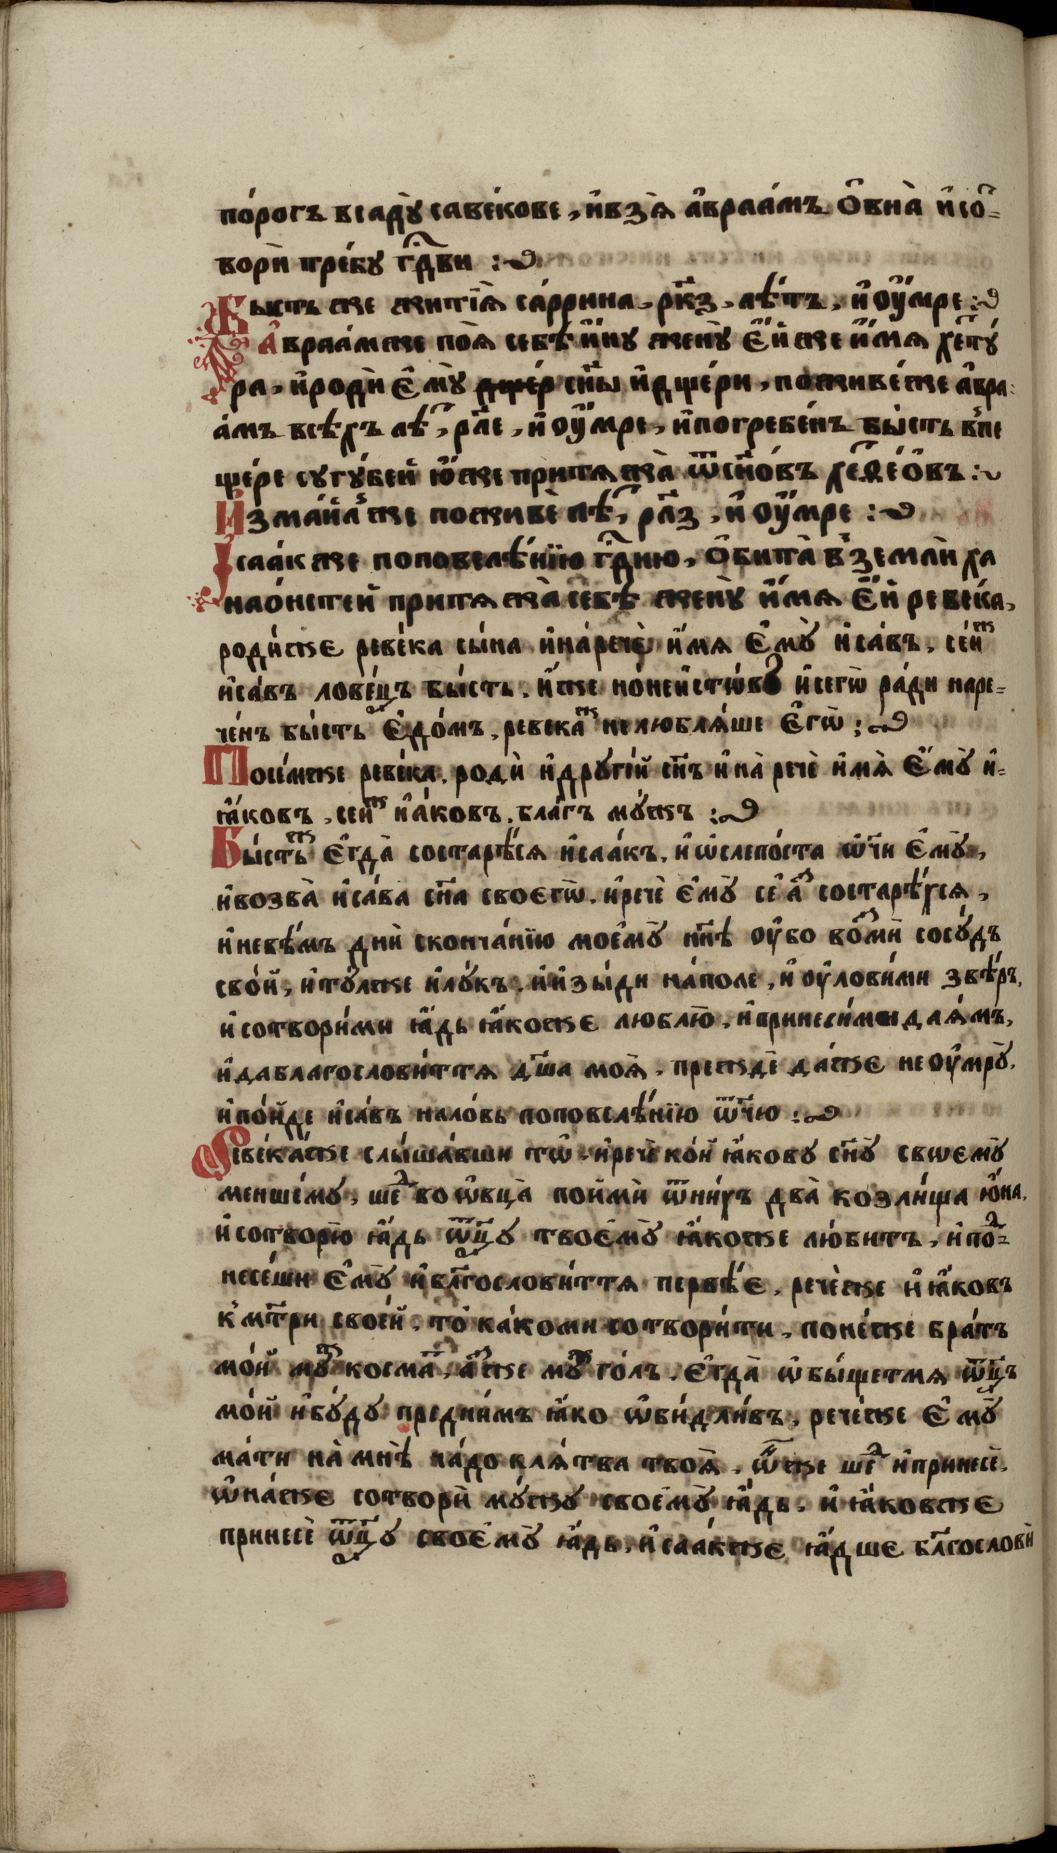 по́рогъ всадꙋ̀ саве́кове, и҆взѧ̀ а҆враа́мъ ѻ҆вна̀ и҆со=
ворѝ тре́бꙋ гдⷭ҇ви :
Бысть же житїѧ̀ са́ррина, рк҃з, лѣ́тъ, и҆ оу҆́мре :
А҆враа́мже поѧ̀ себѣ̀ и҆́нꙋ женꙋ̀ є҆́йже и҆́мѧ хетꙋ́
ра, и҆родѝ є҆мꙋ̀ сн҃ы и҆дще́ри, поживе́же а҆вра
а́мъ всѣ́хъ лѣ́т, рл҃е, и҆ оу҆́мре, и҆погребе́нъ бы́сть в̾пе
ще́ре сꙋгꙋ́бей ю҆́же притѧжа̀ ѿсн҃о́въ хетѳео́въ :
И҆змаи́лже поживѐ лѣ́т, рл҃з, и҆ оу҆́мре :
І҆саа́кже поповелѣ́нїю гдⷭ҇ню, ѻ҆бита̀ в̾землѝ ха
нао́нстей притѧжа̀ себѣ̀ женꙋ̀ и҆́мѧ є҆́й реве́ка,
роди́же реве́ка сы́на и҆на́речѐ и҆́мѧ є҆мꙋ̀ и҆са́въ, се́йже
и҆са́въ лове́цъ бы́сть, и҆сегѡ̀ ра́ди наре=
че́нъ бы́сть є҆до́мъ, ревекаже нелюблѧ́ше є҆гѡ̀ :
Посе́мже реве́ка, родѝ и҆дрꙋгі́й сн҃ъ и҆на́речѐ и҆́мѧ̀ є҆мꙋ̀ и҆=
ꙗ҆́ковъ, сейже и҆ꙗ҆́ковъ, бла́гъ мꙋ́жъ :
Бы́стьже є҆гда̀ состарѣ́сѧ и҆саа́къ, и҆ ѡ҆слепо́ста ѻ҆́чи є҆мꙋ̀,
и҆возва̀ и҆са́ва сн҃а своегѡ̀, и҆речѐ є҆мꙋ̀ се́ а҆́з состарѣ́хсѧ,
и҆невѣ́мъ днѝ сконча́нїю моемꙋ̀ нн҃ѣ оу҆бо возмѝ сосꙋ́дъ
сво́й, и҆тꙋ́лже и҆лꙋ́къ, и҆и҆зы́ди на́поле, и҆ оу҆лови́ми звѣ́рь,
и҆сотвори́ми ꙗ҆́дь ꙗ҆́коже люблю̀, и҆принеси́ми даꙗ́мъ,
и҆даблагослови́ттѧ дш҃а моѧ̀, пре́жде да́же не оу҆мрꙋ̀,
и҆по́йде и҆са́въ наловь поповелѣ́нїю ѻ҆́ч҃ю :
Реве́ка́же слы́шавши то̀ и҆речѐ ко́й ꙗ҆́ковꙋ сн҃ꙋ̀ свѡемꙋ̀
менше́мꙋ, ше́д во ѡ҆вца̀ поимѝ ѿни́хъ два̀ козли́ща ю҆́на,
и҆сотворю̀ ꙗ҆́дь ѿцꙋ̀ твоемꙋ̀ ꙗ҆́коже лю́битъ, и҆под=
несе́ши є҆мꙋ̀ и҆бл҃гослови́ттѧ первѣ́е, рече́же и҆ꙗ҆́ковъ
к̾мт҃ри свое́й, то̀ ка́коми сотвори́ти, поне́же бра́тъ
мо́й мꙋ́ж косма́т, а҆́зже мꙋ́ж го́лъ, є҆гда̀ ѡ҆бы́щетмѧ ѻ҆ц҃ъ
мо́й и҆бꙋ́дꙋ предни́мъ ꙗ҆́ко ѡ҆би́дли́въ, рече́же є҆мꙋ̀
ма́ти на̀ мнѣ̀ ча́до клѧ́тва твоѧ̀, ты́же ше́д и҆принесѐ,
ѡ҆на́же сотворѝ мꙋ́жꙋ своемꙋ̀ ꙗ҆́дь, и҆ ꙗ҆́ковже
принесѐ ѿцꙋ̀ своемꙋ̀ ꙗ҆́дь, и҆саа́кже ꙗ҆́дше бл҃гословѝ